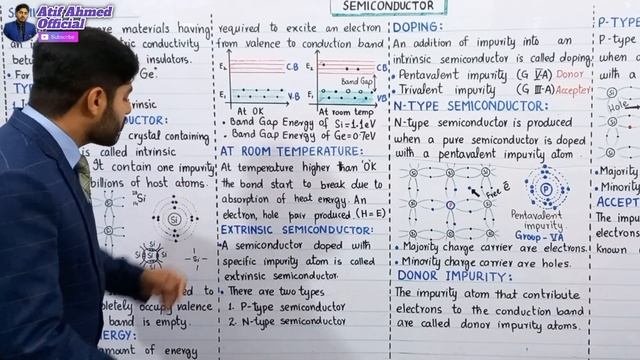 Atif Ahmed
Official
Subscribe
SEMICONDUCTOR
materials having
conductivity
insulators.
Ge°
crystal containing
is called intrinsic
It contain one impurity
billions of host atoms.
Si
Si
Si
Si
Si
Si
-Si-
to
completely occupy valence
band is empty.
ENERGY:
amount of energy
required to excite an electron
from valence to conduction band
C.B
V.B
At 0K
C.B
Band Gap
V.B
At room temp
• Band Gap Energy of Si=1.1eV
• Band Gap Energy of Ge=0.7eV
AT ROOM TEMPERATURE:
At temperature higher than 0K
the bond start to break due to
absorption of heat energy. An
electron, hole pair produced (H=E)
EXTRINSIC SEMICONDUCTOR:
A semiconductor doped with
specific impurity atom is called
extrinsic semiconductor.
• There are two types
1. P-type semiconductor
2. N-type semiconductor
DOPING:
An addition of impurity into an
intrinsic semiconductor is called doping
• Pentavalent impurity (G V-A) Donor
• Trivalent impurity (G III-A) Accepter
N-TYPE SEMICONDUCTOR:
N-type semiconductor is produced
when a pure semiconductor is doped
with a pentavalent impurity atom
Free ē
P
Pentavalent
impurity
Group-VA
• Majority charge carrier are electrons.
• Minority charge carrier are holes.
DONOR IMPURITY:
The impurity atom that contribute
electrons to the conduction band
are called donor impurity atoms.
P-TYPE
P-type
when a
with a
Hole
• Majority
• Minority
ACCEPT
The impu
electrons
Known